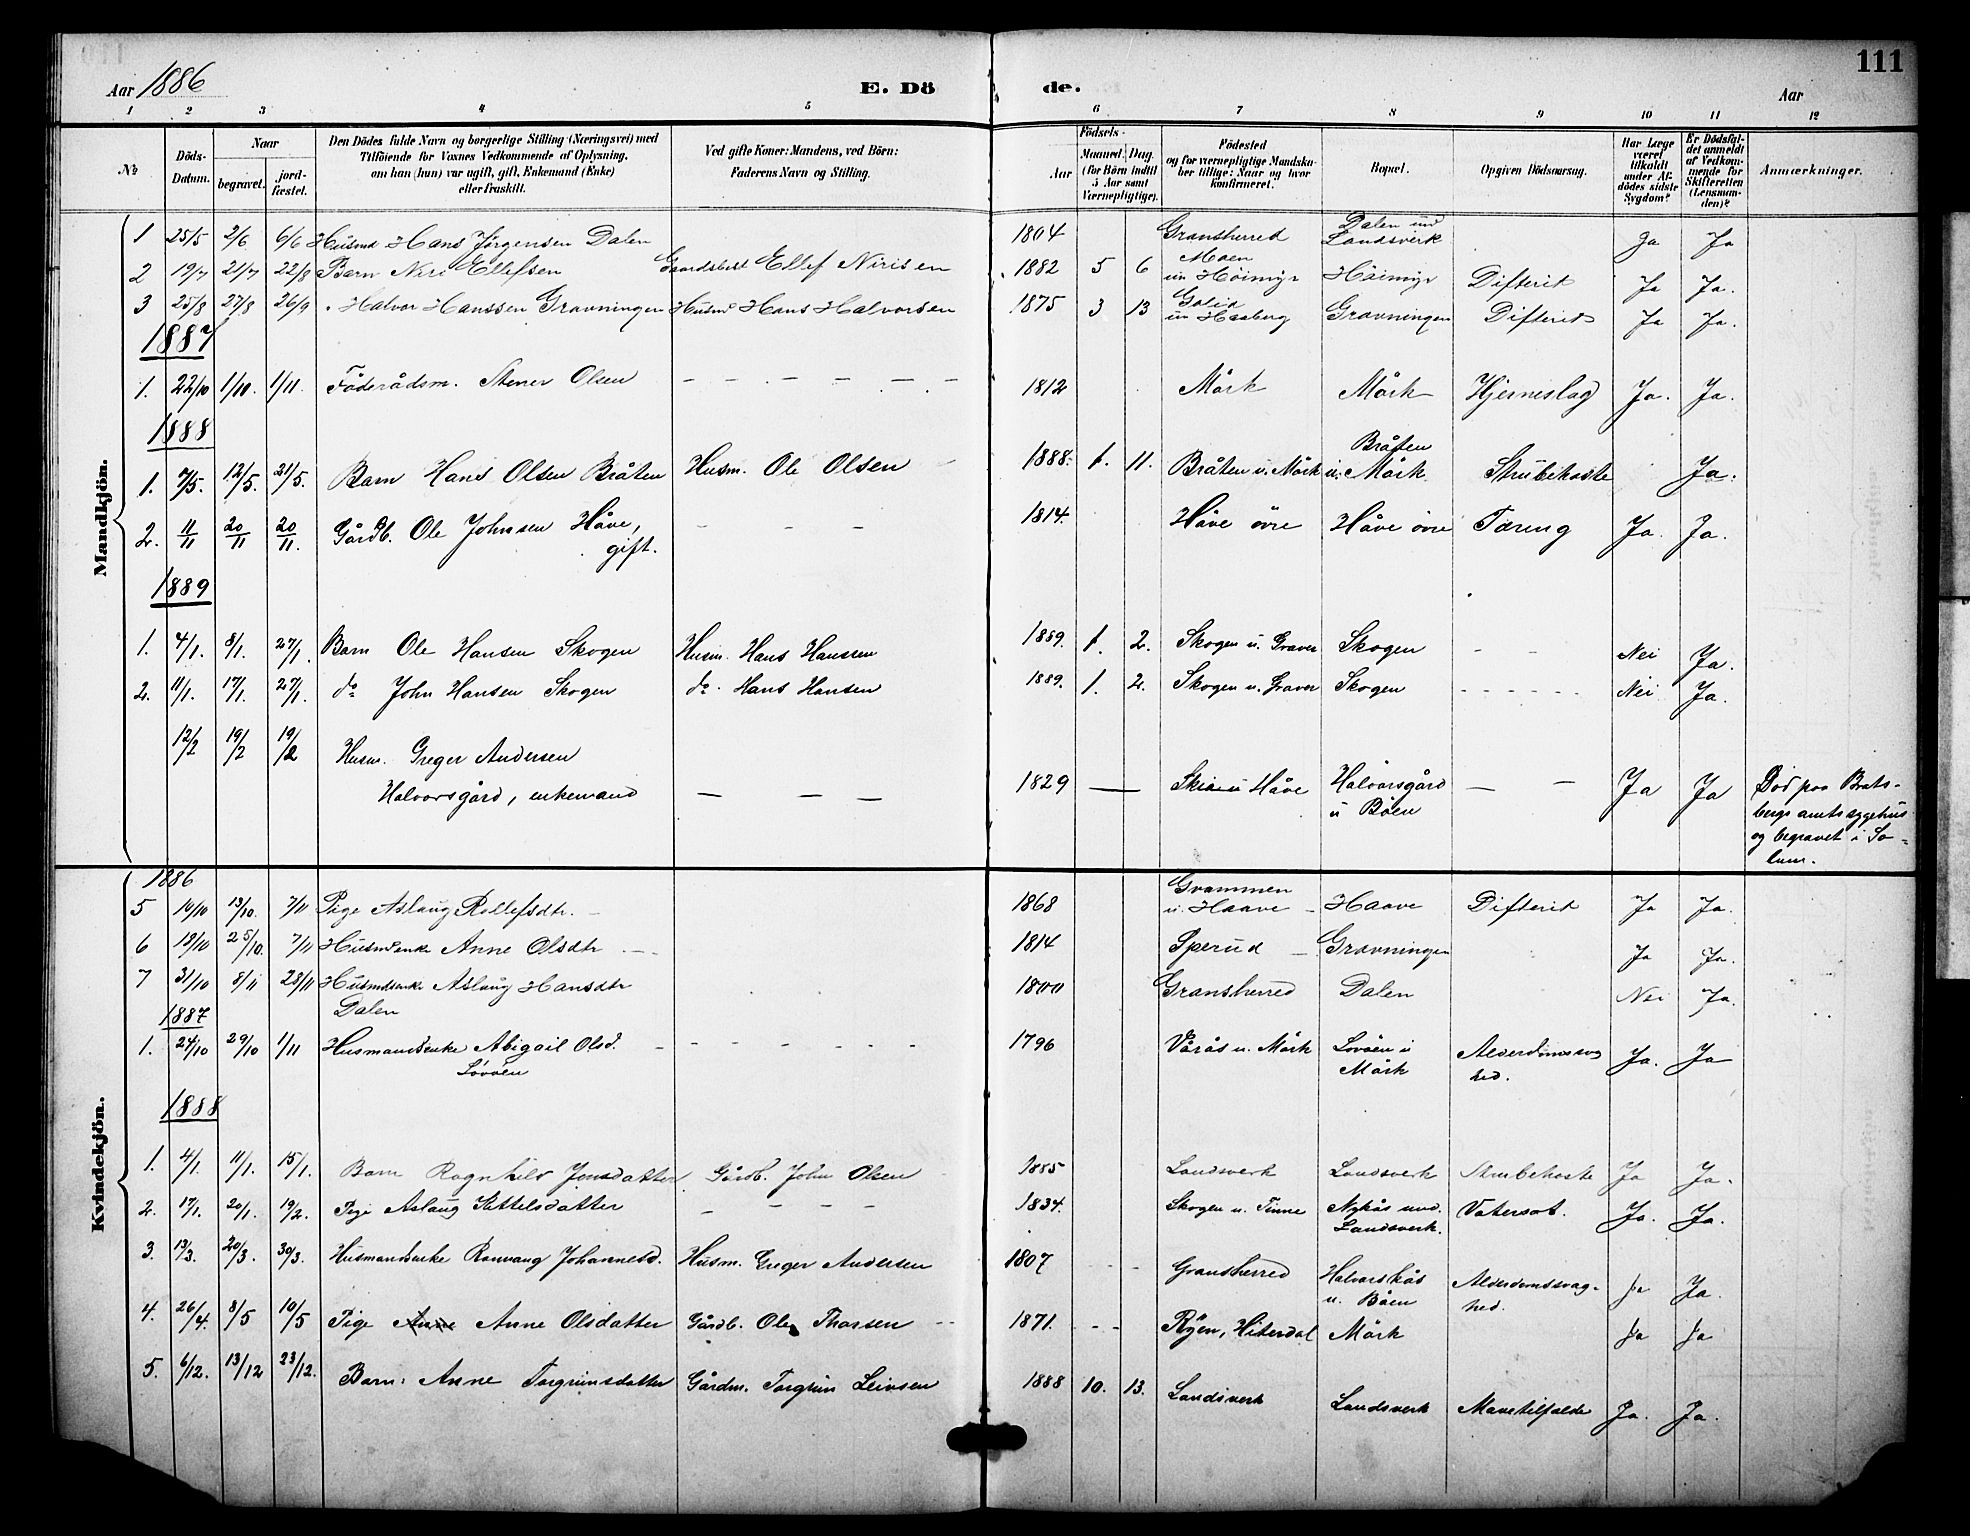 111
Aar 1886 E. Dö de. Aar
1 2 3 4 5 6 7 8 9 10 11 12
No
Döds-Datum.
Naar
begravet.
jord-fæstet.
Den Dödes fulde Navn og borgerlige Stilling (Næringsvei) med
Tilföiende for Voxnes Vedkommende af Oplysning,
om han (hun) var ugift, gift, Enkemand (Enke)
eller fraskilt.
Ved gifte Koner: Mandens, ved Börn:
Faderens Navn og Stilling.
Födsels-
Aar
Maaned. Dag.
(for Börn indtil
5 Aar samt
Værnepligtige).
Födested
og for værnepligtige Mandska-
ber tillige: Naar og hvor
konfirmeret.
Bopæl.
Opgiven Dödsaarsag.
Har Læge
været
tilkaldt
under Af-
dödes sidste
Sygdom?
Er Dödsfal-
det anmeldt
af Vedkom-
mende for
Skifteretten
(Lensman-
den)?
Anmærkninger.
Mandkjön.
1 25/5 2/6 6/6 Husmd Hans Jørgensen Dalen 1804 Gransherred Dalen und Landsverk Ja Ja
2 19/7 21/7 22/8 Barn Niri Ellefsen Gaardsbest Ellef Nirisen 1882 5 6 Moen un Höimyr Höimyr Difterit Ja Ja.
3 25/8 27/8 26/9 Halvor Hanssen Gravningen Husmd Hans Halvorsen 1875 3 13 un Haaberg Gravningen Difterit Ja Ja.
1887
1. 22/10 1/10. 1/11. Föderådsm. Stener Olsen 1812 Mörk Mörk Hjerneslag Ja. Ja.
1888
1. 7/5. 12/5. 21/5. Barn Hans Olsen Bråten Husm. Ole Olsen 1888. 1. 11. Bråten u. Mörk Bråten u. Mörk Strubehoste Ja.
2. 11/11 20/11 20/11. Gårdb. Ole Johnsen Håve, 1814. Håve övre Håve övre Tæring Ja. Ja.
gift.
1889
1. 4/1. 8/1. 27/1. Barn Ole Hansen Skogen Husm. Hans Hanssen 1889. 1. 2. Skogen u. Graver Skogen - - Nei Ja.
2. 11/1. 17/1. 27/1. do John Hansen Skogen do. Hans Hansen 1889. 1. 2. Skogen u. Graver Skogen - - - - - - Nei Ja.
12/2 19/2 19/2 Husm. Greger Andersen
Halvorsgård, enkemand — — — 1829 — u Håve Halvorsgård u Böen — — Ja Ja Död paa Brats-
bergs amtssygehus
og begravet i So-
lum.
Kvindekjön.
1886
5 10/10 13/10. 7/11 Pige Aslaug Rollefsdtr. 1868 Grammen u. Haave Haave Difterit Ja Ja.
6 18/10 25/10. 7/11 Husmdsenke Anne Olsdtr 1814 Sperud Gravningen Ja Ja.
7 31/10 8/11 28/11 Husmdsenke Aslaug Hansdtr 1800 Gransherred Dalen Nei Ja.
Dalen
1887
1. 24/10 29/10 1/11 Husmandsenke Abigail Olsd. 1796 Vårås u. Mörk Lövöen u Mörk Alderdomssvag
hed. Ja. Ja
Lövöen
1888
1. 4/1. 11/1. 15/1. Barn Ragnhild Jonsdatter Gårdb. John Olsen 1885 Landsverk Landsverk Strubehoste Ja Ja.
2. 17/1. 20/1. 19/2. Pige Aslaug Kittelsdatter - - - - 1834. Skogen u. Tinne Nykås und. Landsverk. Vatersot. Ja. Ja.
3. 13/3. 20/3. 30/3. Husmandsenke Ronnaug Johannesd. Husm. Greger Andersen 1807 Gransherred Halvorskås u. Böen Alderdomssvag-
hed. Ja Ja.
4. 26/4. 8/5 10/5 Pige Anne Anne Olsdatter Gårdb. Ole Thorsen 1871. Ryen, Hiterdal Mörk Ja Ja
5. 6/12. 13/12 23/12. Barn: Anne Torgrimsdatter Gårdm. Torgrim Leivsen 1888 10. 13. Landsverk Landsverk Mavetilfælde Ja. Ja.